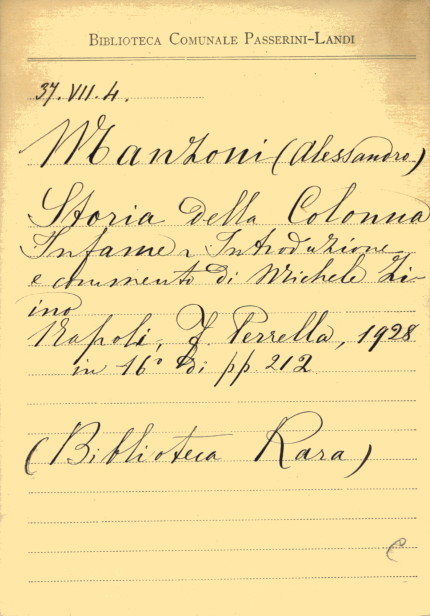 BIBLIOTECA COMUNALE PASSERINI-LANDI
37.VII.4.
Manzoni (Alessandro)
Storia della Colonna
Infame ~ Introduzione
e commento di Michele Zi-
ino
Napoli, F. Perrella, 1928
in 16° di pp. 212
(Biblioteca Rara)